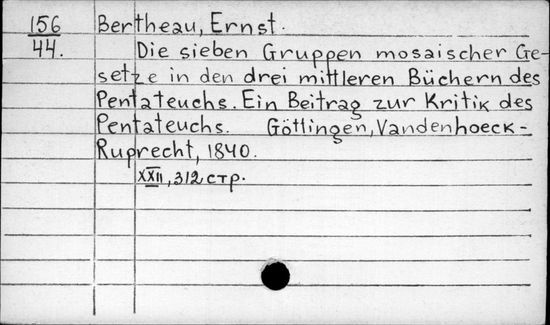 156 Bertheau, Ernst.
44. Die sieben Gruppen mosaischer Ge-
setze in den drei mittleren Büchern des
Pentateuchs. Ein Beitrag zur Kritik des
Pentateuchs. Göttingen, Vandenhoeck-
Ruprecht, 1840.
XXII, 312 стр.